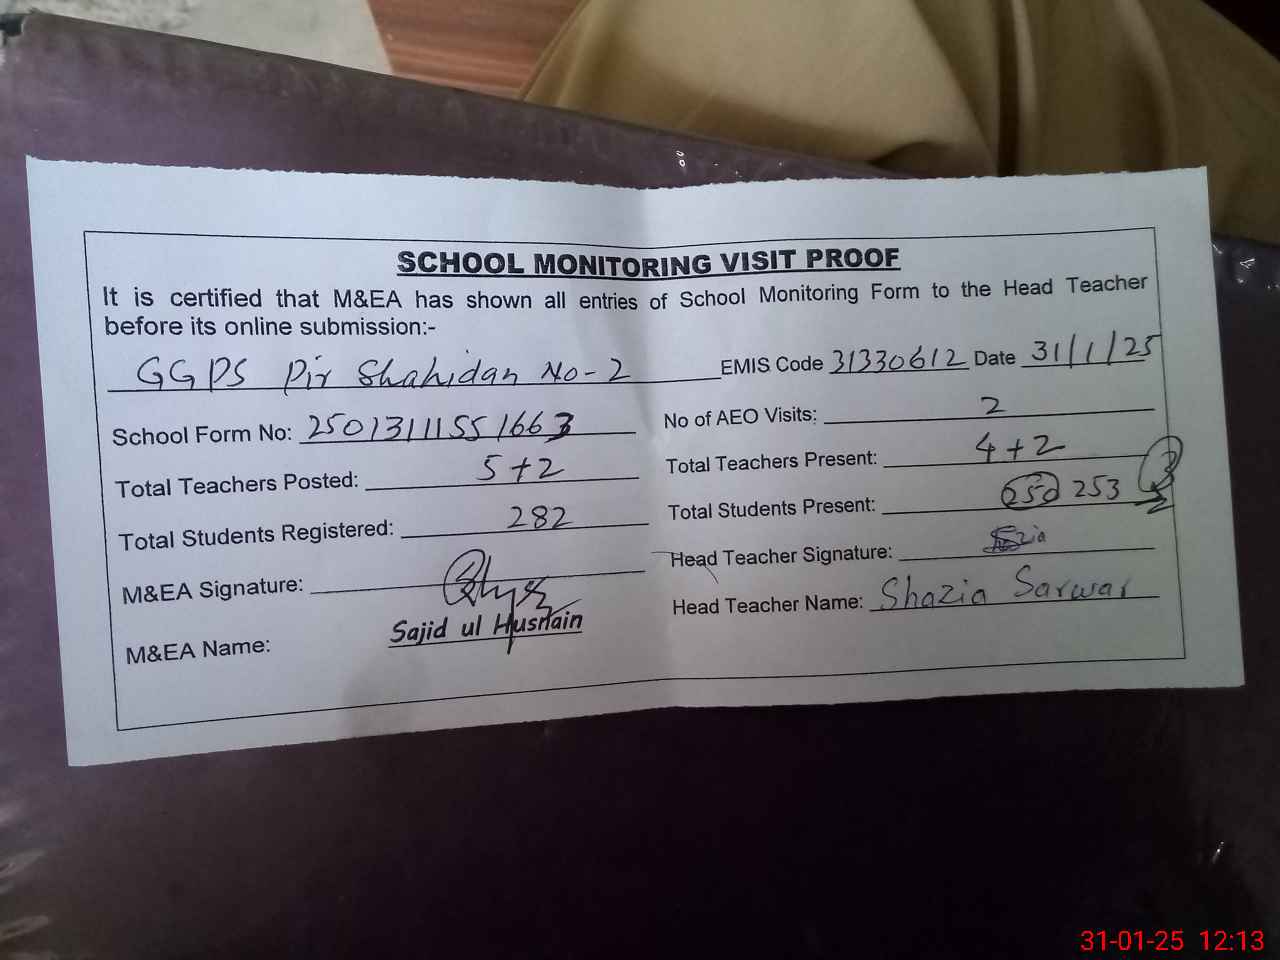 SCHOOL MONITORING VISIT PROOF
It is certified that M&EA has shown all entries of School Monitoring Form to the Head Teacher
before its online submission:-
GGPS Pir Shahidan No-2 EMIS Code 31330612 Date 31/1/25
School Form No: 2501311155 1663 No of AEO Visits: 2
Total Teachers Posted: 5+2 Total Teachers Present: 4+2
Total Students Registered: 282 Total Students Present: 250 253
M&EA Signature: Head Teacher Signature:
M&EA Name: Sajid ul Husnain Head Teacher Name: Shazia Sarwar
31-01-25 12:13